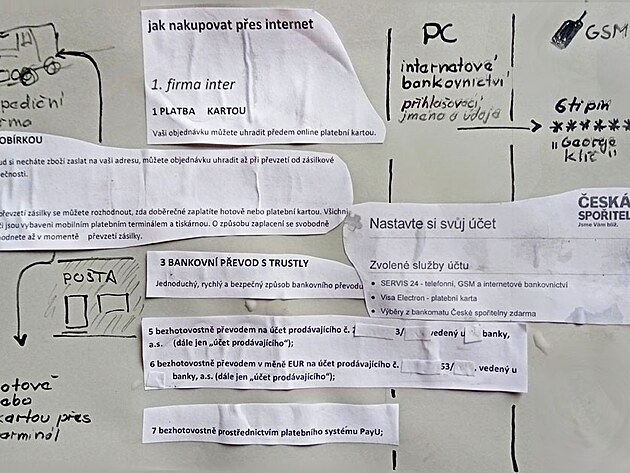 jak nakupovat přes internet
1. firma inter
1 PLATBA KARTOU
Vaši objednávku můžete uhradit předem online platební kartou.
PC
internatové
bankovnictví
přihlašovací
jméno a údaja
GSM
6tipin
*****
"George
klíč"
pediční
rma
OBÍRKOU
ud si necháte zboží zaslat na vaši adresu, můžete objednávku uhradit až při převzetí od zásilkové
ečnosti.
převzetí zásilky se můžete rozhodnout, zda doběrečné zaplatíte hotově nebo platební kartou. Všichni
či jsou vybaveni mobilním platebním terminálem a tiskárnou. O způsobu zaplacení se svobodně
hodnete až v momentě převzetí zásilky.
ČESKÁ
SPOŘITEL
Jsme Vám blíž.
Nastavte si svůj účet
Zvolené služby účtu
SERVIS 24 - telefonní, GSM a internetové bankovnictví
Visa Electron - platební karta
Výběry z bankomatu České spořitelny zdarma
POŠTA
3 BANKOVNÍ PŘEVOD S TRUSTLY
Jednoduchý, rychlý a bezpečný způsob bankovního převodu
5 bezhotovostně převodem na účet prodávajícího č. 3/ vedený u banky,
a.s. (dále jen „účet prodávajícího");
6 bezhotovostně převodem v měně EUR na účet prodávajícího č. 53/ , vedený u
banky, a.s. (dále jen „účet prodávajícího");
7 bezhotovostně prostřednictvím platebního systému PayU;
otově
abo
kartou přes
arminól